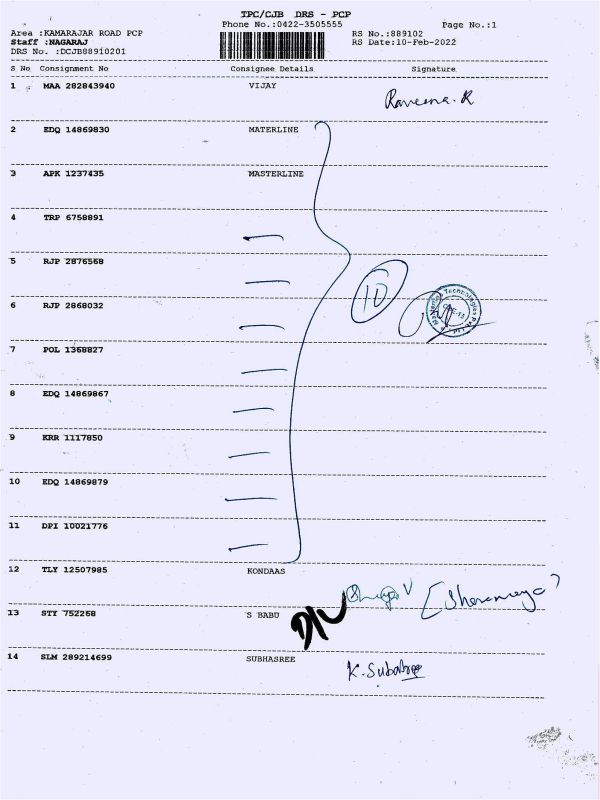 TPC/CJB DRS - PCP
Phone No.:0422-3505555
Page No.:1
Area :KAMARAJAR ROAD PCP
RS No.:889102
Staff :NAGARAJ
RS Date:10-Feb-2022
DRS No. :DCJB88910201
S No Consignment No Consignee Details Signature
1 MAA 282843940 VIJAY
Raveena.R
2 EDQ 14869830 MATERLINE
3 APK 1237435 MASTERLINE
4 TRP 6758891
5 RJP 2876568
10
6 RJP 2868032
7 POL 1368827
8 EDQ 14869867
9 KRR 1117850
10 EDQ 14869879
11 DPI 10021776
12 TLY 12507985 KONDAAS
13 STY 752268 S BABU
D/L
14 SLM 289214699 SUBHASREE
K.Subashree